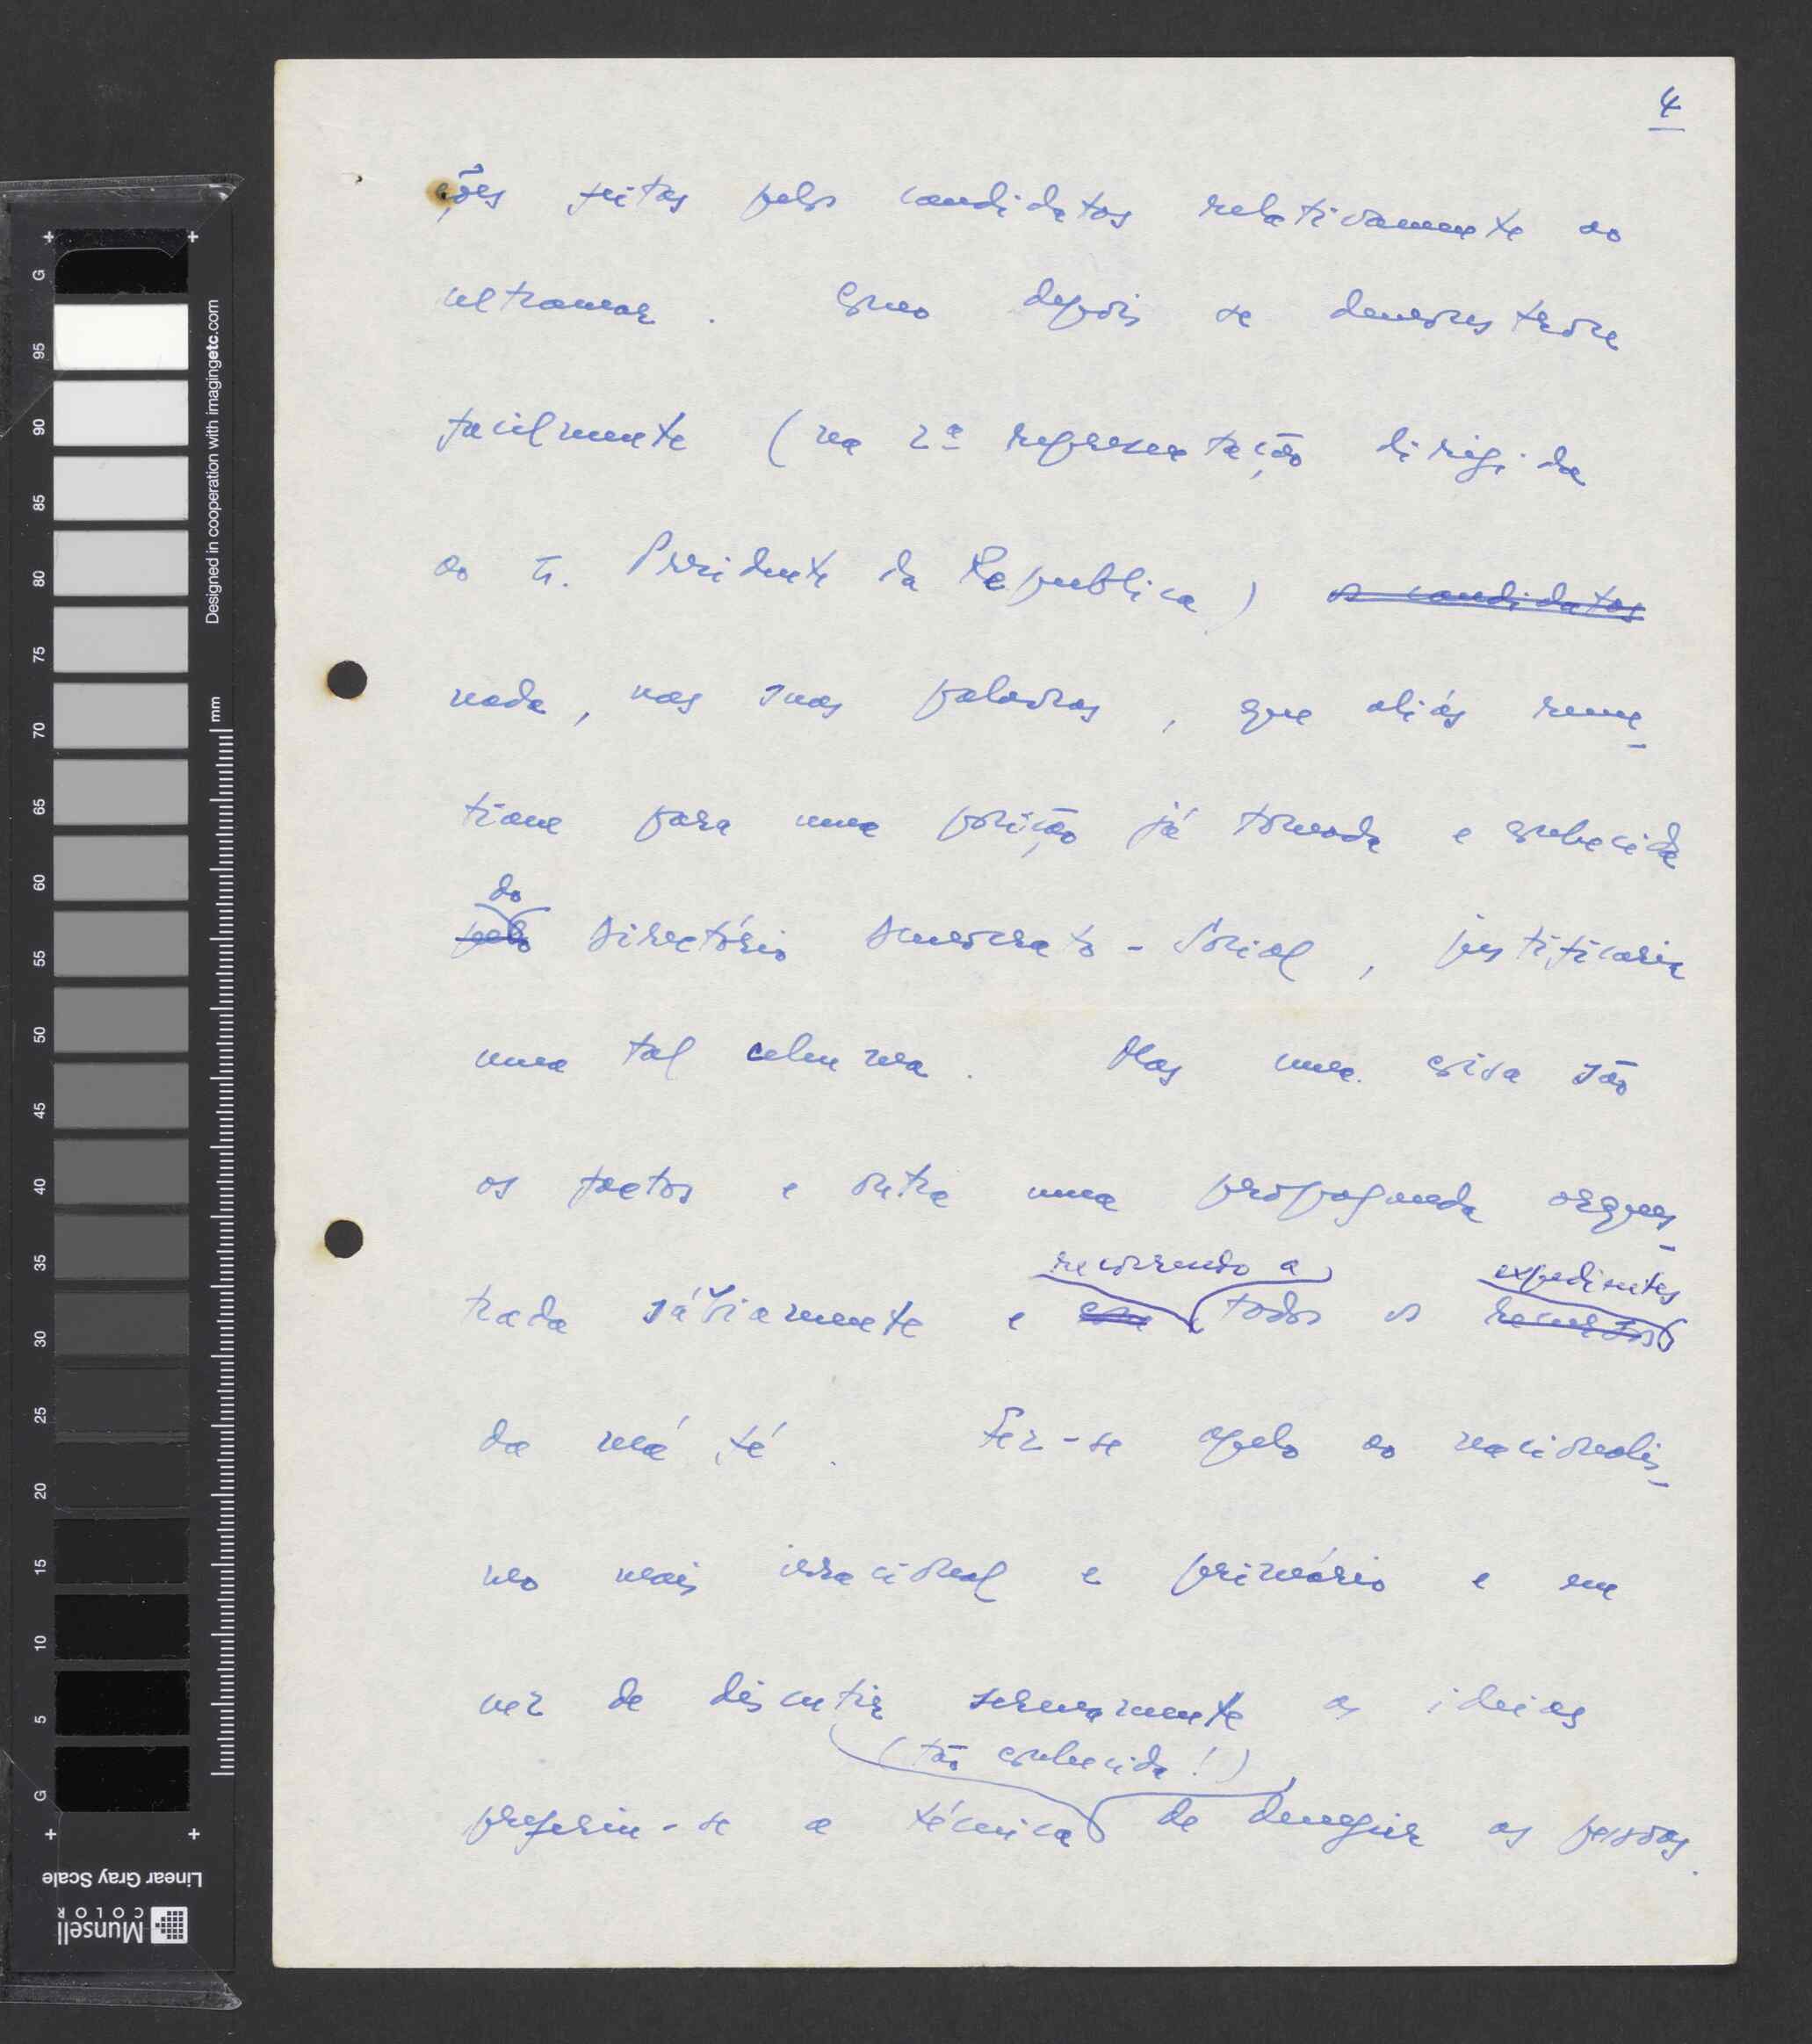 4
ções feitas pelos candidatos relativamente ao
ultramar. Como depois se demonstrou
facilmente (na 2ª representação dirigida
ao Sr. Presidente da Republica) os candidatos
nada, nas suas palavras, que aliás reme-
tiam para uma posição já tomada e conhecida
do
pelo Directório Democrato-Social, justificaria
uma tal celeuma. Mas uma coisa são
os factos e outra uma propaganda orques-
recorrendo a expedientes
trada sàbiamente e com todos os recursos
da má fé. Fez-se apelo ao nacionalis-
mo mais irracional e primário e em
vez de discutir serenamente as ideias
(tão conhecida!)
preferiu-se a técnica de denegrir as pessoas.
G
95
90
85
80
75
70
65
60
55
50
45
40
35
30
25
20
15
10
5
G
Designed in cooperation with imagingetc.com
mm
Linear Gray Scale
Munsell
COLOR